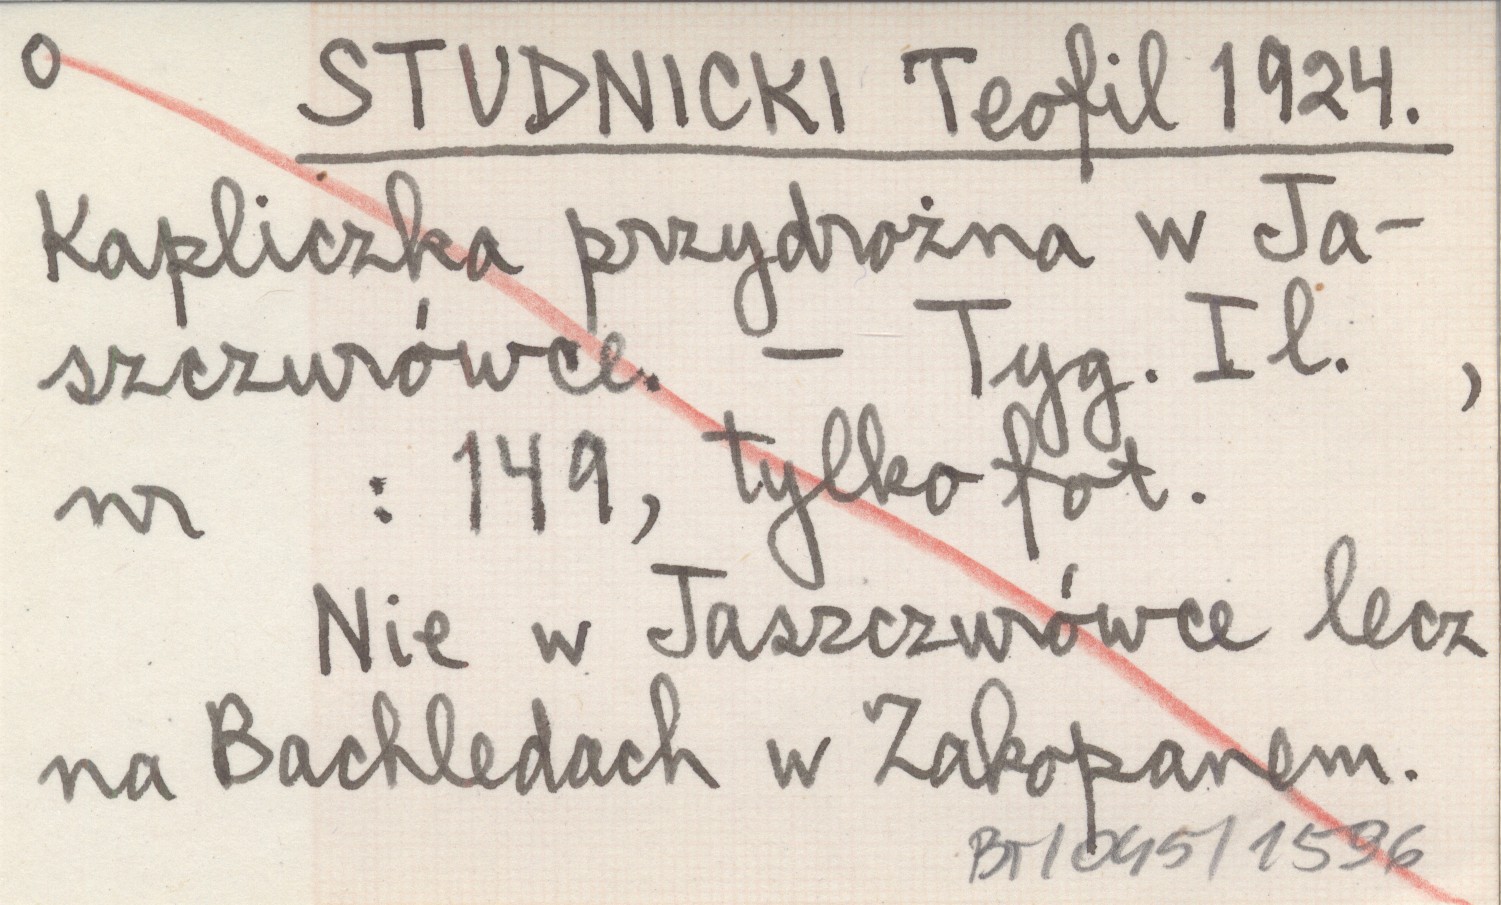 O STUDNICKI Teofil 1924.
Kapliczka przydrożna w Ja-
szczurówce. — Tyg. Il. ,
nr : 149, tylko fot.
Nie w Jaszczurówce lecz
na Bachledach w Zakopanem.
BT/045/1596